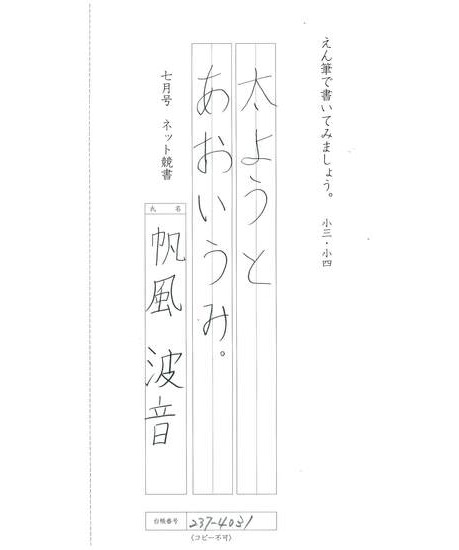 えん筆で書いてみましょう。 小三・小四
太ようと
あおいうみ。
七月号 ネット競書
氏 名
帆風 波音
台帳番号 237-4031
(コピー不可)